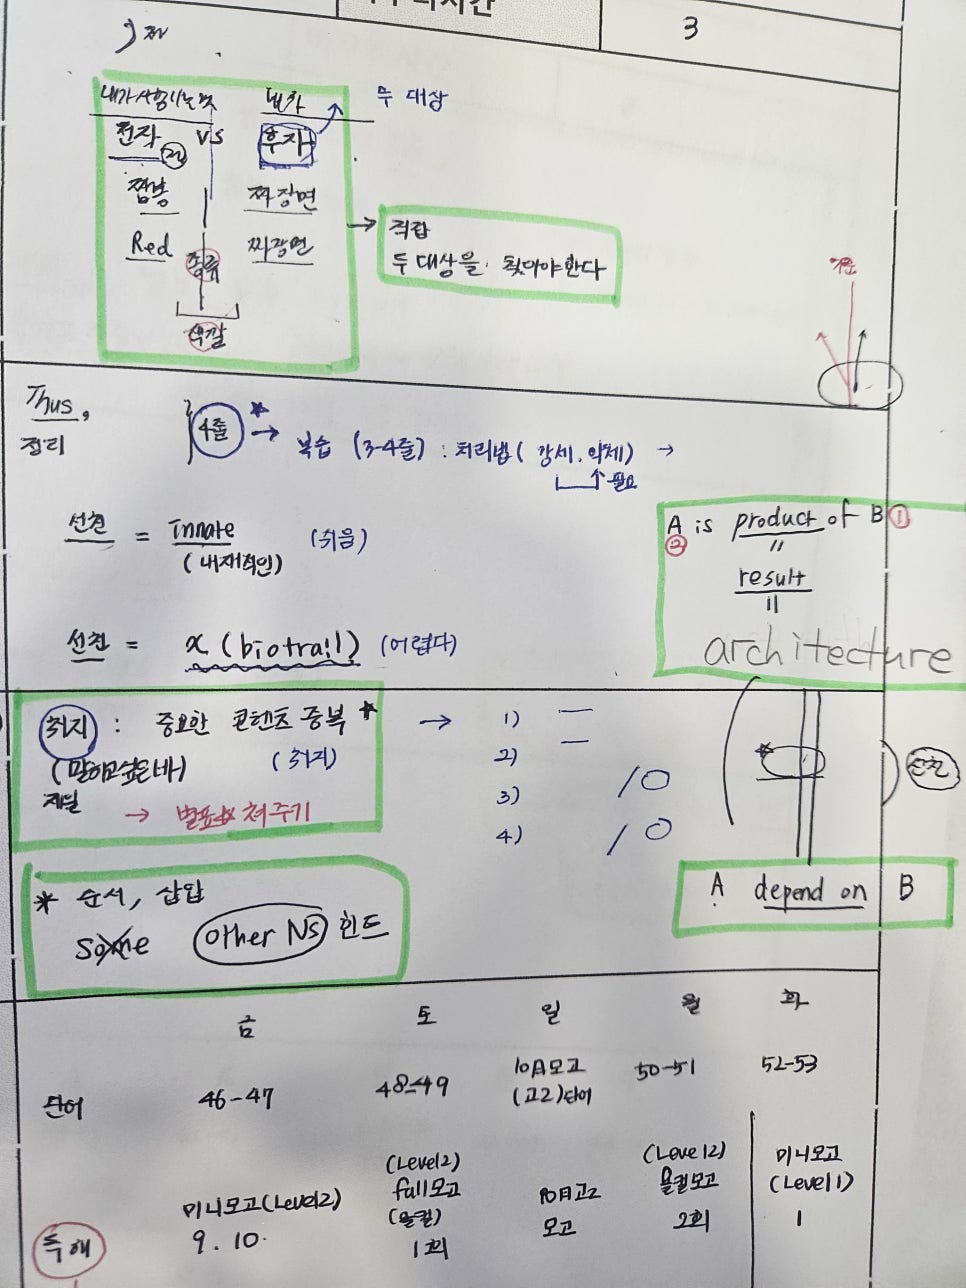 3
대가
두 대상
전자
VS
후자
짬뽕
짜장면
Red
짜장면
종류
색깔
→ 직접
두 대상을 찾아야한다
기준
Thus,
정리
4줄 ★ → 복습 (3-4줄) : 처리법 ( 강세. 억제) →
필요
선천 = innate (쉬움)
(내재적인)
선천 = x (biotrail) (어렵다)
A is product of B ①
②
〃
result
=
architecture
취지 : 중요한 콘텐츠 중복 ★ →
(말하고싶은바) (취지)
제일
→ 별표★ 쳐주기
1)
2)
3) / O
4) / O
선천
A depend on B
* 순서, 삽입
some other Ns 힌트
금 토 일 월 화
단어 46-47 48-49 10月모고 (고2)단어 50-51 52-53
독해
미니모고(Level2)
9. 10.
(Level2)
full모고
(올컬)
1회
10月고2
모고
(Level2)
올컬모고
2회
미니모고
(Level1)
1